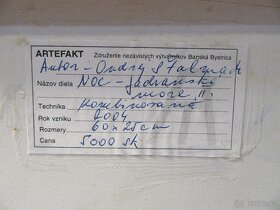 ARTEFAKT Združenie nezávislých výtvarníkov Banská Bystrica
Autor - Ondrej
Názov diela NOC - Jadranské
more II.
Technika kombinovaná
Rok vzniku 2004
Rozmery 60x25cm
Cena 5000 sk